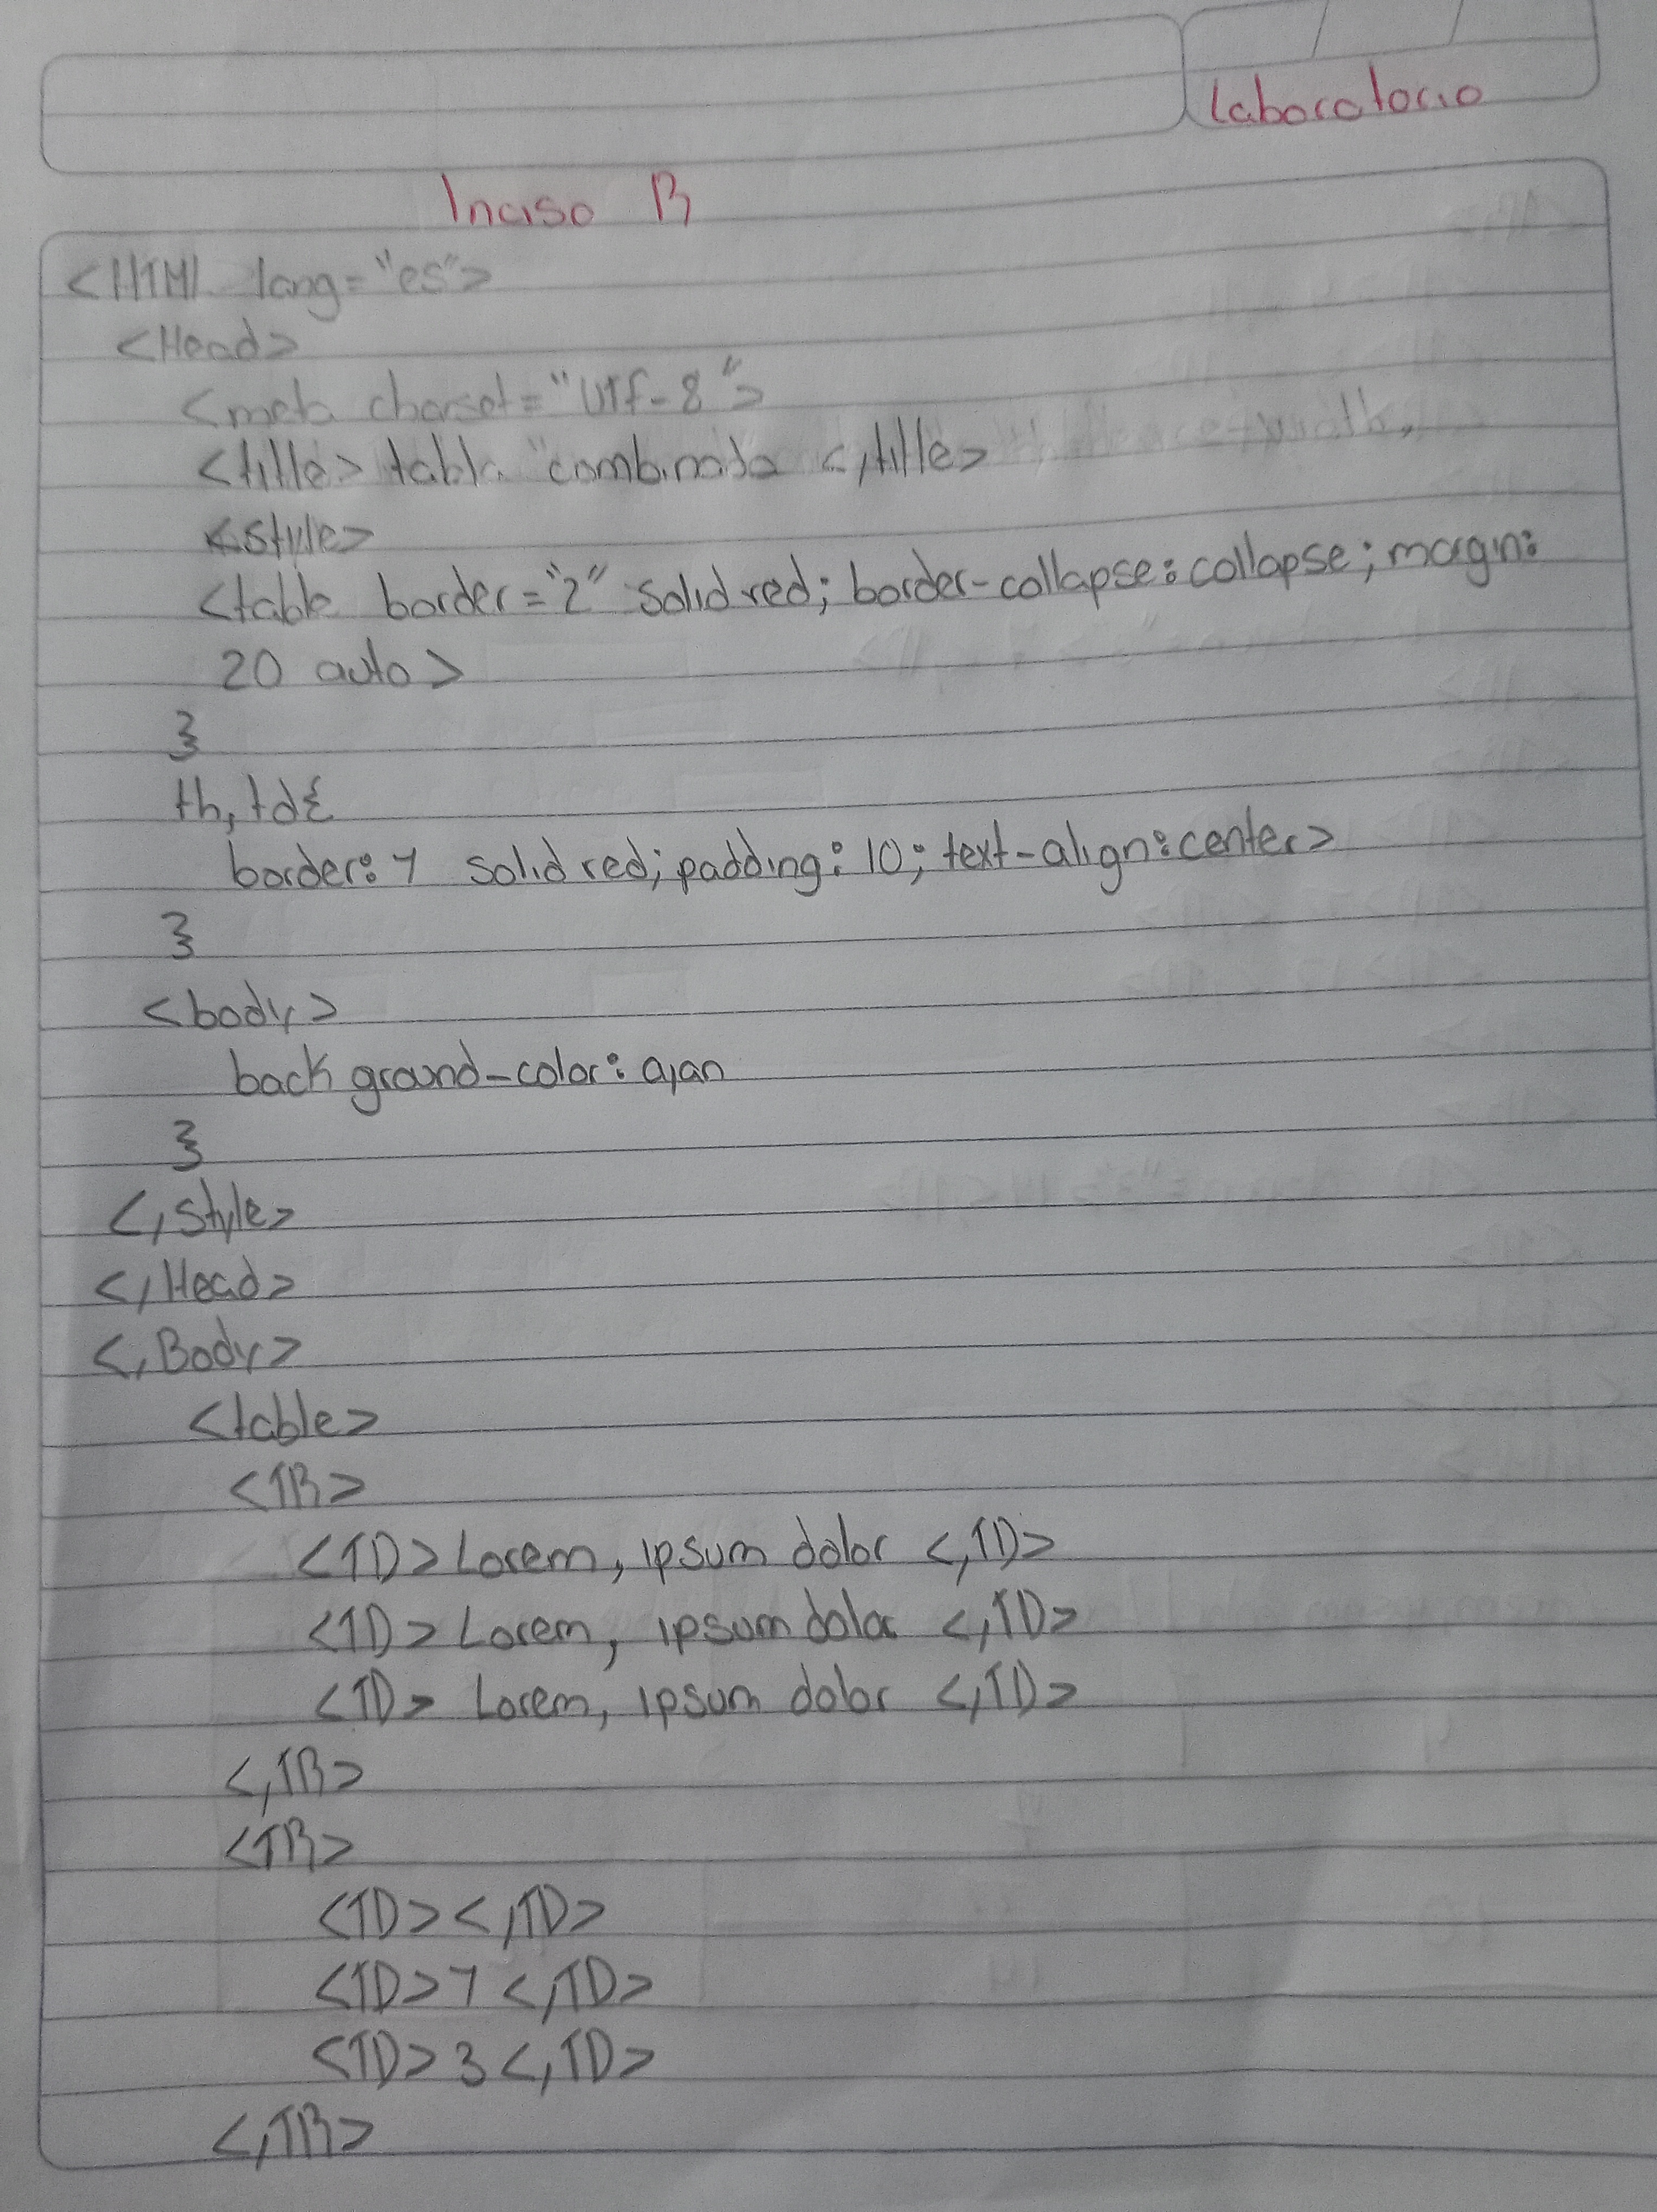 Laboratorio
Inciso B
<HTML lang="es">
<Head>
<meta charset="UTf-8">
<title> tabla "combinada </title>
<style>
<table border="2" solid red; border-collapse: collapse; margin:
20 auto>
}
th, td{
border: 1 solid red; padding: 10; text-align: center>
}
<body>
back ground-color: cyan
}
</style>
</Head>
</Body>
<table>
<TR>
<TD> Lorem, ipsum dolor </TD>
<TD> Lorem, ipsum dolor </TD>
<TD> Lorem, ipsum dolor </TD>
</TR>
<TR>
<TD></TD>
<TD>7</TD>
<TD>3</TD>
</TR>